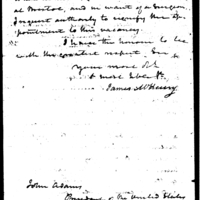 at           and in want of a Surgeon
I request authority to signify the ap-
pointment to this vacancy.
I have the honour to be
with the greatest respect, Sir
your most Ob
& most Hble St.
James McHenry
John Adams
President of the United States